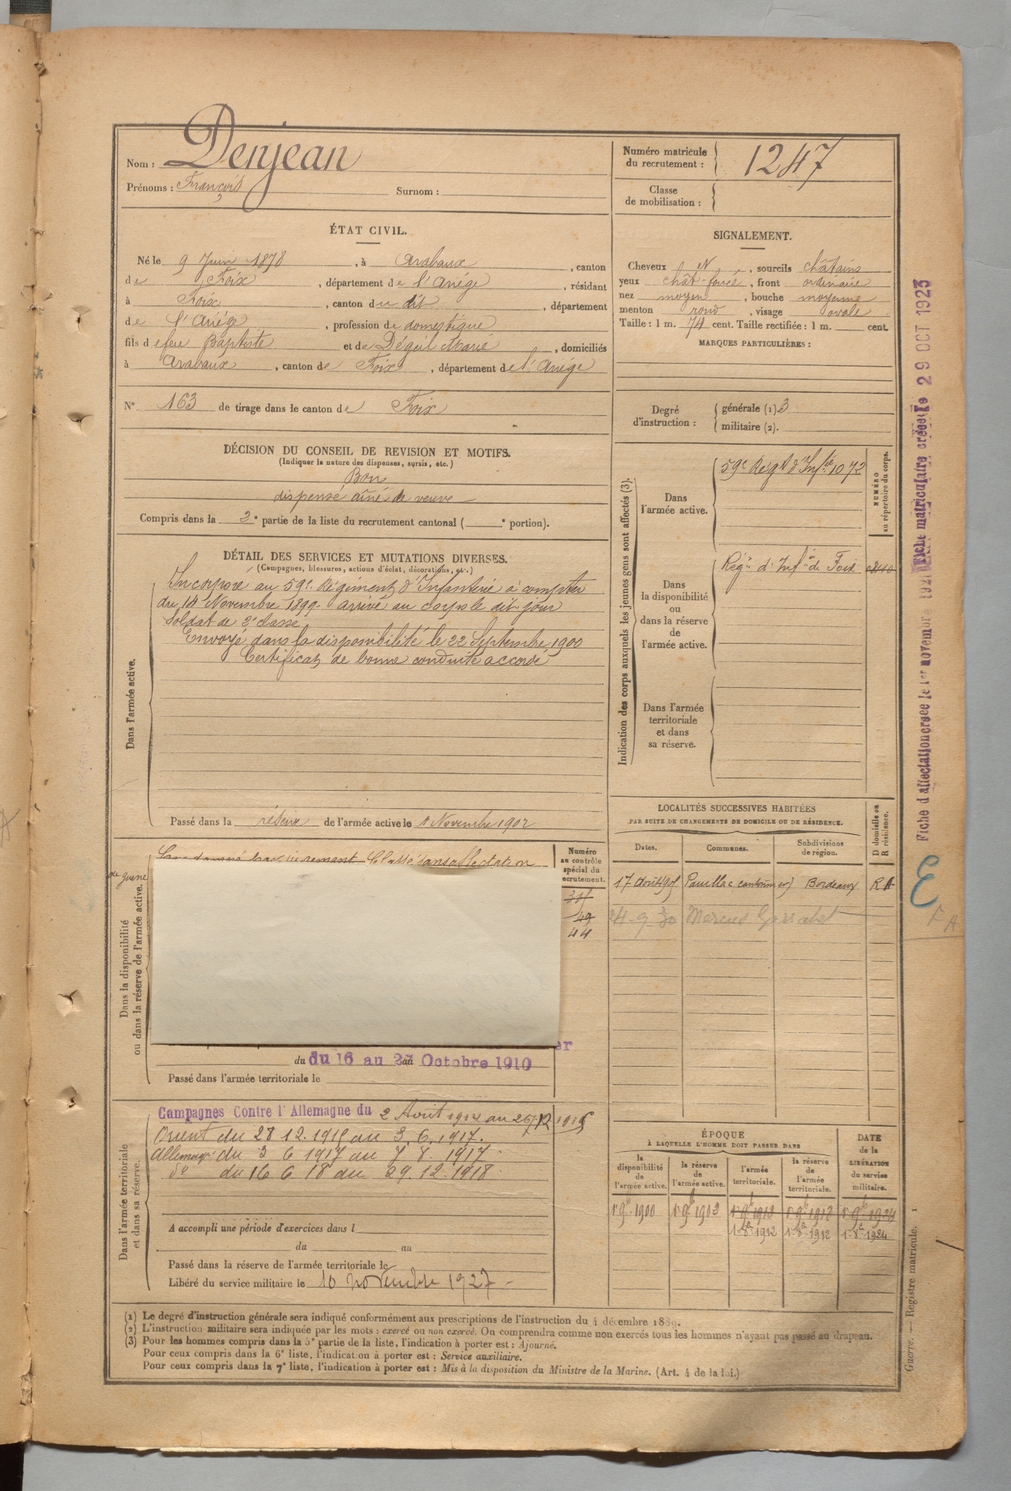 Nom : Denjean
Prénoms : François Surnom :
Numéro matricule du recrutement : 1247
Classe de mobilisation :
ÉTAT CIVIL.
Né le 9 Juin 1878, à Arabaux, canton
de Foix, département de l'Ariège, résidant
à Foix, canton du dit, département
de l'Ariège, profession de domestique
fils de feu Baptiste et de Déguil Marie, domiciliés
à Arabaux, canton de Foix, département de l'Ariège
N° 163 de tirage dans le canton de Foix
SIGNALEMENT.
Cheveux N, sourcils châtains
yeux chât-foncé, front ordinaire
nez moyen, bouche moyenne
menton rond, visage ovale
Taille : 1 m. 74 cent. Taille rectifiée : 1 m. cent.
MARQUES PARTICULIÈRES :
Degré d'instruction : générale (1) 3
militaire (2).
DÉCISION DU CONSEIL DE REVISION ET MOTIFS.
(Indiquer la nature des dispenses, sursis, etc.)
Bon
dispensé aîné de veuve
Compris dans la 2e partie de la liste du recrutement cantonal ( e portion).
DÉTAIL DES SERVICES ET MUTATIONS DIVERSES.
(Campagnes, blessures, actions d'éclat, décorations, etc.)
Dans l'armée active.
Incorporé au 59e Régiment d'Infanterie à compter
du 14 Novembre 1899. arrivé au corps le dit jour
Soldat de 2e classe
Envoyé dans la disponibilité le 22 Septembre 1900
Certificat de bonne conduite accordé
Passé dans la réserve de l'armée active le 1 Novembre 1902
Indication des corps auxquels les jeunes gens sont affectés (3).
NUMÉRO au répertoire du corps.
Dans l'armée active.
59e Régt d'Infie 1072
Dans la disponibilité ou dans la réserve de l'armée active.
Régt d'Infie de Foix
Dans l'armée territoriale et dans sa réserve.
LOCALITÉS SUCCESSIVES HABITÉES
PAR SUITE DE CHANGEMENTS DE DOMICILE OU DE RÉSIDENCE.
Dates. Communes. Subdivisions de région. D domicile ou R résidence.
17 Août 1905 Pauillac Bordeaux R
Dans la disponibilité ou dans la réserve de l'armée active.
Numéro au contrôle spécial du recrutement.
44
er
du du 16 au 27 Octobre 1910
Passé dans l'armée territoriale le
Dans l'armée territoriale et dans sa réserve.
Campagnes Contre l'Allemagne du 2 Août 1914 au 26/12/1915
Orient du 28 12. 1915 au 3. 6. 1917.
Allemagne du 3 6 1917 au 7 8 1917
do du 16 6 18 au 29. 12. 1918.
A accompli une période d'exercices dans l
du au
Passé dans la réserve de l'armée territoriale le
Libéré du service militaire le 10 novembre 1927
ÉPOQUE
À LAQUELLE L'HOMME DOIT PASSER DANS
la disponibilité de l'armée active. la réserve de l'armée active. l'armée territoriale. la réserve de l'armée territoriale. DATE de la LIBÉRATION du service militaire.
(1) Le degré d'instruction générale sera indiqué conformément aux prescriptions de l'instruction du 4 décembre 1889.
(2) L'instruction militaire sera indiquée par les mots : exercé ou non exercé. On comprendra comme non exercés tous les hommes n'ayant pas passé au drapeau.
(3) Pour les hommes compris dans la 5e partie de la liste, l'indication à porter est : Ajourné.
Pour ceux compris dans la 6e liste, l'indication à porter est : Service auxiliaire.
Pour ceux compris dans la 7e liste, l'indication à porter est : Mis à la disposition du Ministre de la Marine. (Art. 4 de la loi.)
Guerre. — Registre matricule. 1
Fiche matriculaire créée le 29 OCT 1923
E